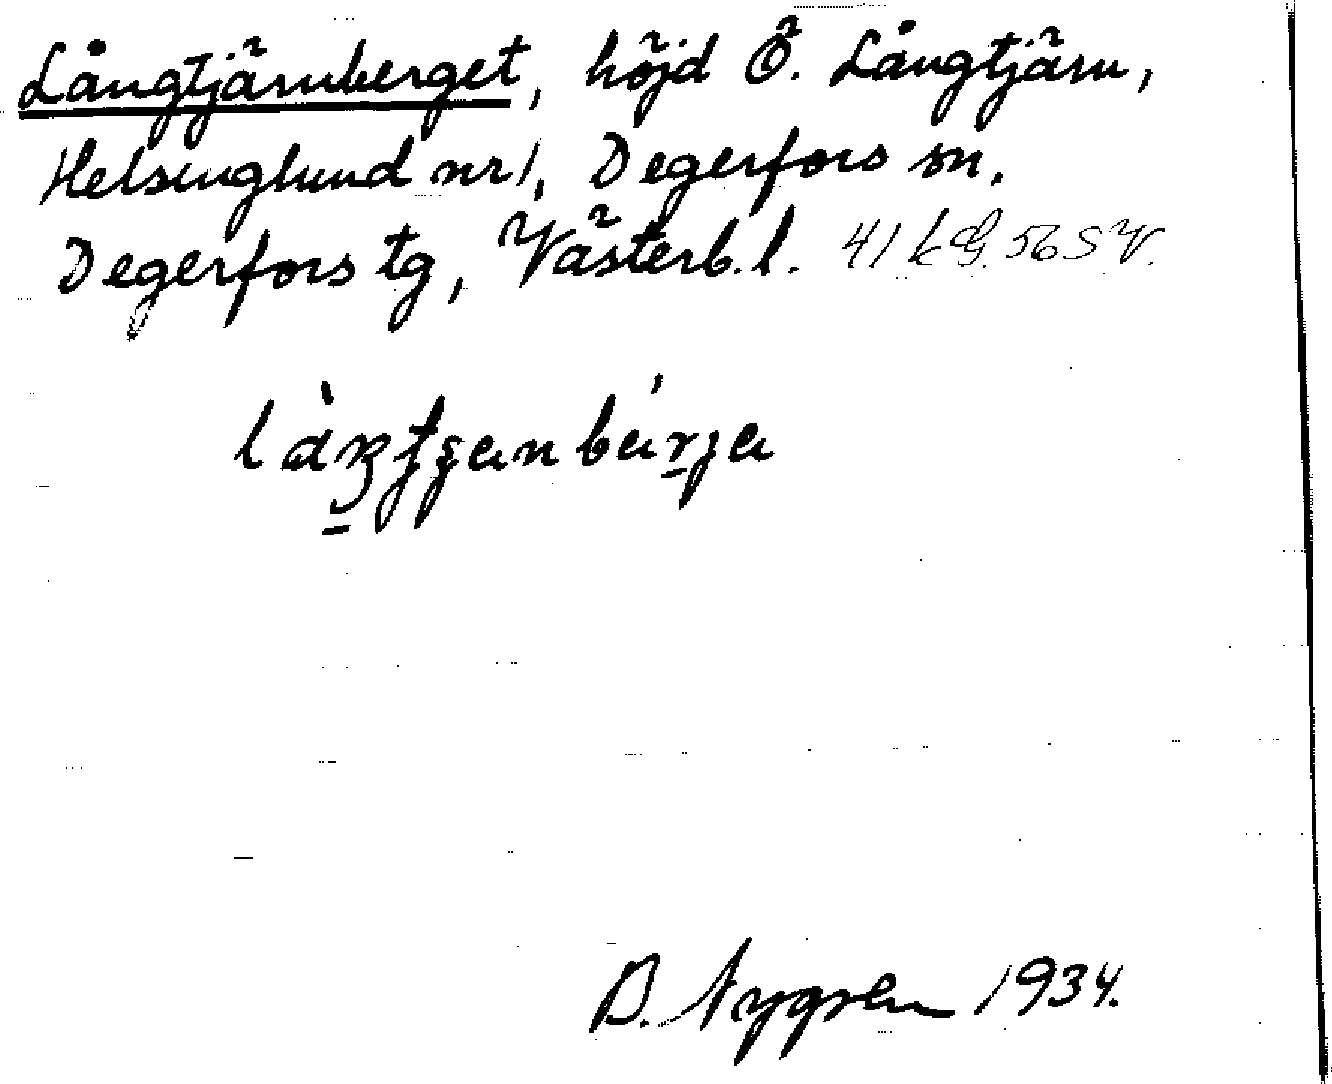 Långtjärnberget, höjd Ö. Långtjärn,
Helsinglund nr 1, Degerfors sn,
Degerfors tg, Västerb. l. 41 56 SV.
B. Nygren 1934.